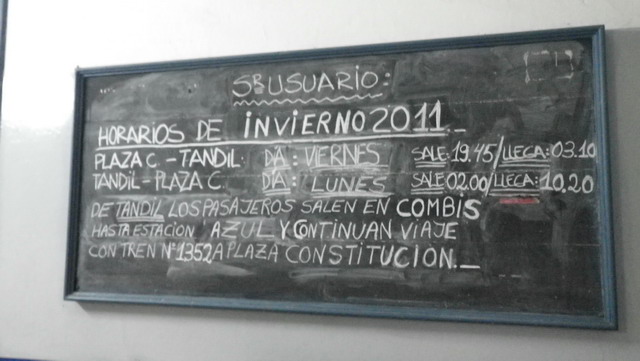 Sr. USUARIO:
HORARIOS DE INVIERNO 2011.
PLAZA C. - TANDIL: DÍA: VIERNES SALE: 19.45/LLEGA: 03.10
TANDIL - PLAZA C. DÍA: LUNES SALE 02.00/LLEGA: 10.20
DE TANDIL LOS PASAJEROS SALEN EN COMBIS
HASTA ESTACION AZUL Y CONTINUAN VIAJE
CON TREN Nº 1352 A PLAZA CONSTITUCION.